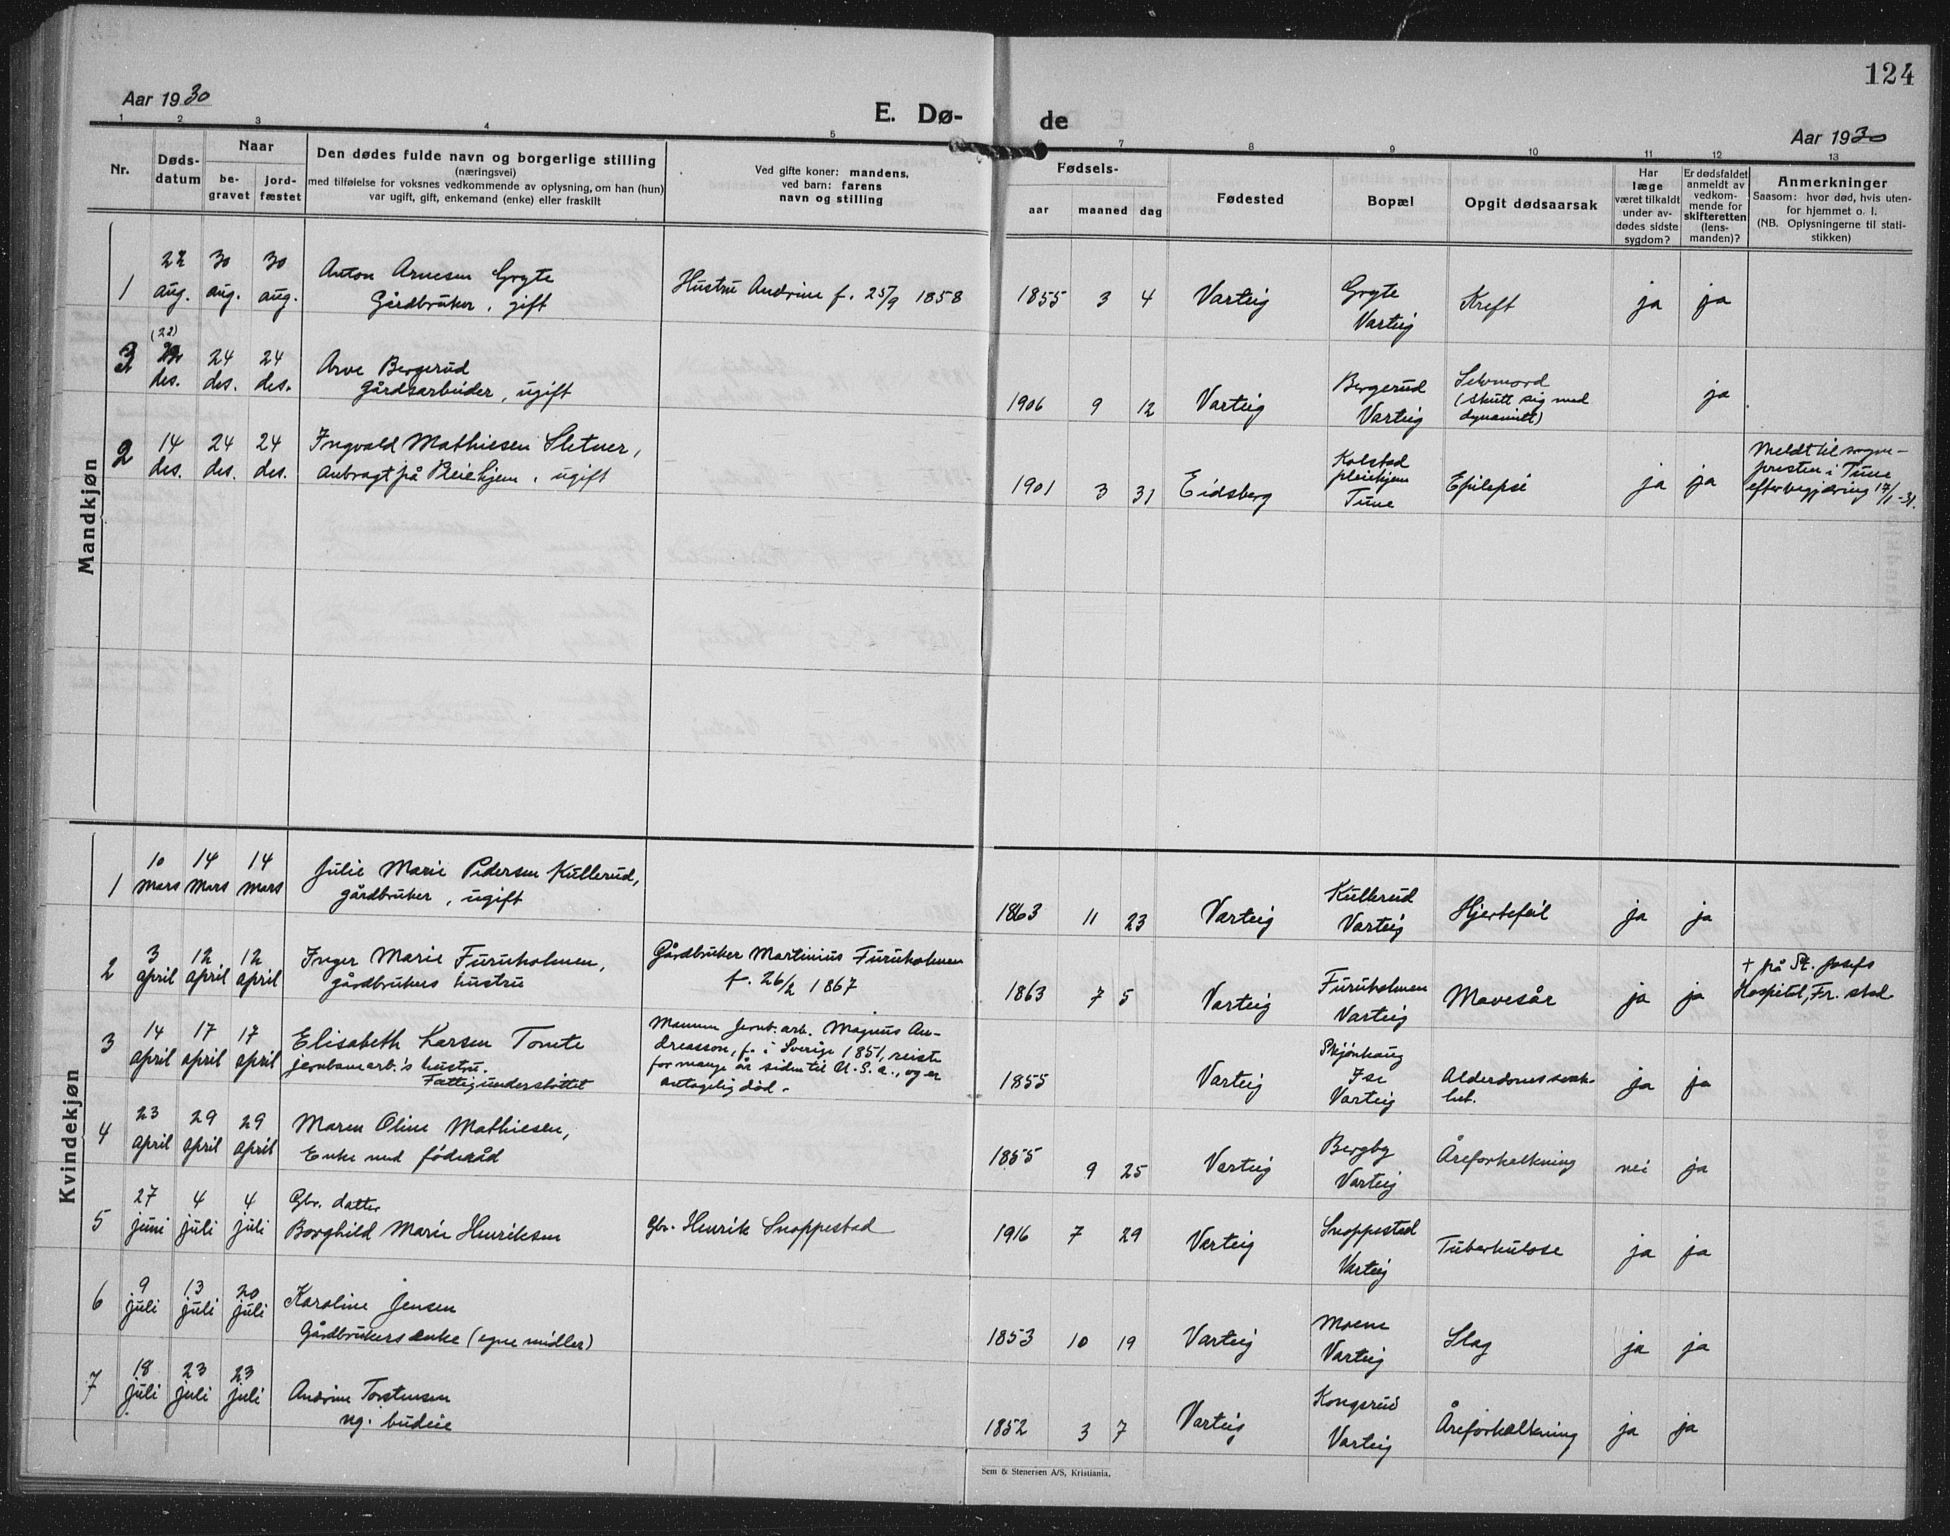 124
Aar 1930
E. Dø- de
Aar 1930
1 2 3 4 5 7 8 9 10 11 12 13
Nr.
Døds-
datum
Naar
be-
gravet
jord-
fæstet
Den dødes fulde navn og borgerlige stilling
(næringsvei)
med tilføielse for voksnes vedkommende av oplysning, om han (hun)
var ugift, gift, enkemand (enke) eller fraskilt
Ved gifte koner: mandens,
ved barn: farens
navn og stilling
Fødsels-
aar maaned dag
Fødested
Bopæl
Opgit dødsaarsak
Har
læge
været tilkaldt
under av-
dødes sidste
sygdom?
Er dødsfaldet
anmeldt av
vedkom-
mende for
skifteretten
(lens-
manden)?
Anmerkninger
Saasom: hvor død, hvis uten-
for hjemmet o. l.
(NB. Oplysningerne til stati-
stikken)
Mandkjøn
1
22 aug.
30 aug.
30 aug.
Anton Arnesen Gryte
Gårdbruker, gift
Hustru Andrine f. 25/9 1858
1855 3 4
Varteig
Gryte
Varteig
Kreft
ja ja
3
(22)
des.
24 des.
24 des.
Arve Bergerud
Gårdsarbeider, ugift
1906 9 12
Varteig
Bergerud
Varteig
Selvmord
(skutt sig med
dynamitt)
ja
2
14 des.
24 des.
24 des.
Ingvald Mathiesen Sletner,
anbragt på Pleiehjem, ugift
1901 3 31
Eidsberg
Kolstad
pleiehjem
Tune
Epilepsi
ja ja
Meldt til sogne-
presten i Tune
efter begjæring 17/1-31.
Kvindekjøn
1
10 mars
14 mars
14 mars
Julie Marie Pedersen Kullerud,
gårdbruker, ugift
1863 11 23
Varteig
Kullerud
Varteig
Hjertefeil
ja ja
2
3 april
12 april
12 april
Inger Marie Furuholmen,
gårdbrukers hustru
Gårdbruker Martinius Furuholmen
f. 26/2 1867
1863 7 5
Varteig
Furuholmen
Varteig
Mavesår
ja ja
+ på St. Josefs
Hospital, Fr. stad
3
14 april
17 april
17 april
Elisabeth Larsen Tomte
jernbanearb.'s hustru.
Fattigunderstøttet
Mannen Jernb. arb. Magnus An-
dreasson, f. i Sverige 1851, reiste
for mange år siden til U.S.A., og er
antagelig død.
1855
Varteig
Ise
Varteig
Alderdomssvak-
het.
ja ja
4
23 april
29 april
29 april
Maren Oline Mathiesen,
Enke med føderåd
1855 9 25
Varteig
Bergby
Varteig
Åreforkalkning
nei ja
5
27 juni
4 juli
4 juli
Gbr. datter
Borghild Marie Henriksen
Gbr. Henrik Snoppestad
1916 7 29
Varteig
Snoppestad
Varteig
Tuberkulose
ja ja
6
9 juli
13 juli
20 juli
Karoline Jensen
Gårdbrukers enke (egne midler)
1853 10 19
Varteig
Moene
Varteig
Slag
ja ja
7
18 juli
23 juli
23 juli
Andrine Torstensen
ug. budeie
1852 3 7
Varteig
Kongsrud
Varteig
Åreforkalkning
ja ja
Sem & Stenersen A/S, Kristiania.